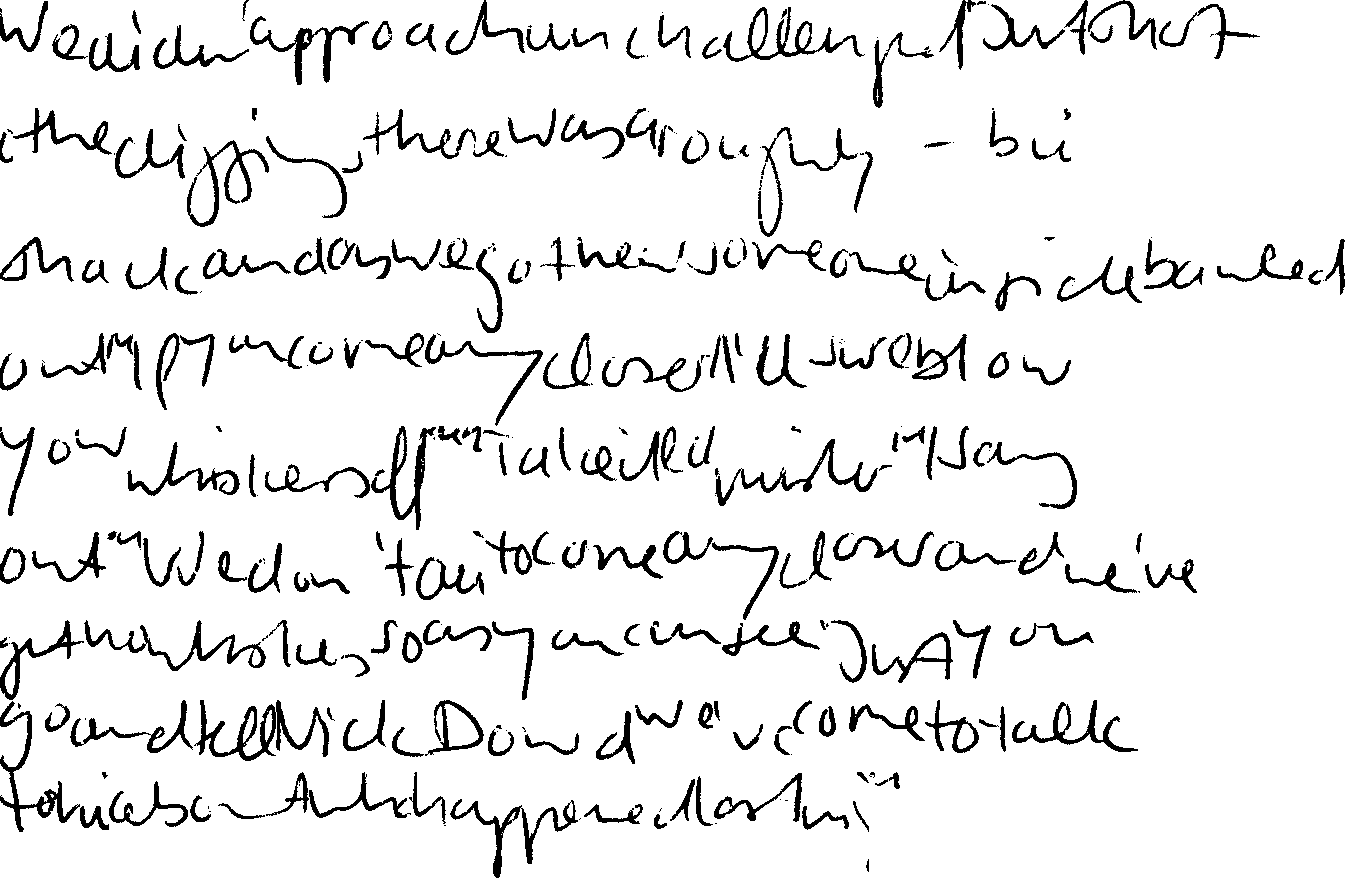 We didn't approach unchallenged. Out of that
the digging, there was a roughly - bui
shack and as we got here someone inside bawled
out "If you come any closer I'll blow
your whiskers off" "Take it mister" I sang
out "We don't aim to come any closer and we've
got no whiskers so as you can see. Just you
go and tell Nick Dowd we've come to talk
to him about what happened last ni"